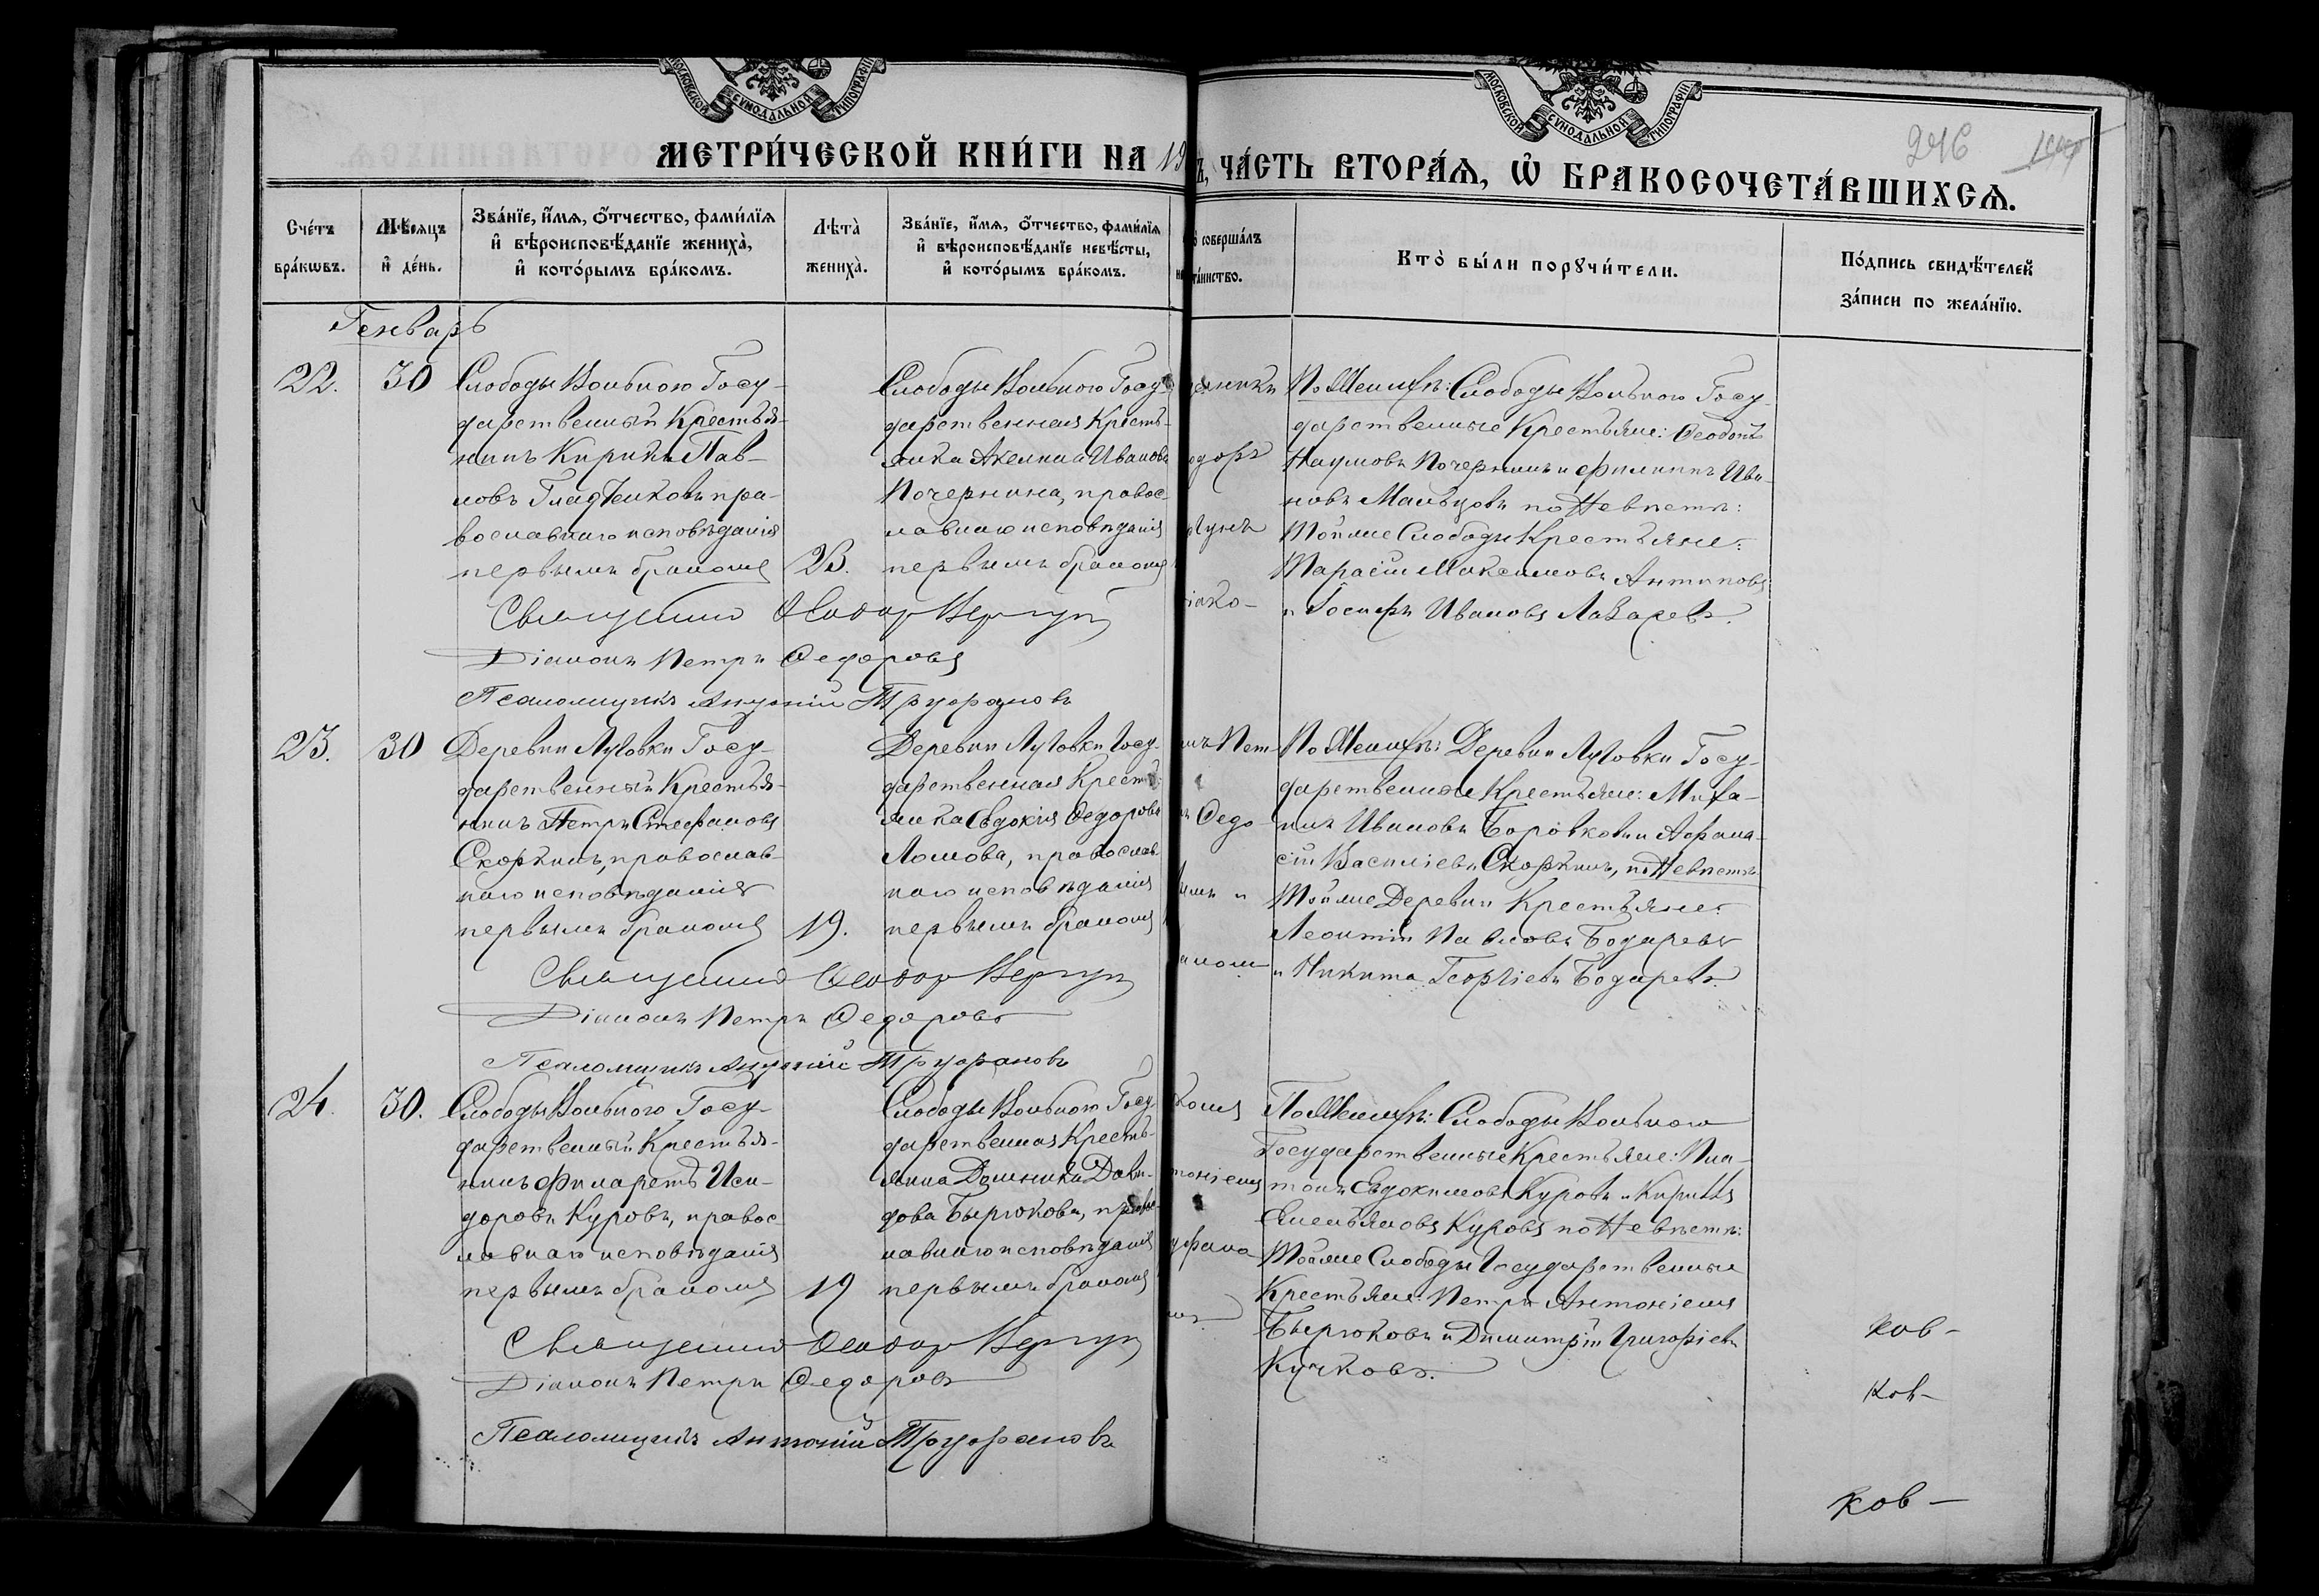 МОСКОВСКОЙ СУНОДАЛЬНОЙ ТИПОГРАФІИ
МОСКОВСКОЙ СУНОДАЛЬНОЙ ТИПОГРАФІИ
МЕТРИ́ЧЕСКОЙ КНИ́ГИ НА 19
ЧА́СТЬ ВТОРА́Я, Ѡ БРАКОСОЧЕТА́ВШИХСЯ.
246
Сче́тъ бра́кѡвъ.
Мѣ́сяцъ и҆ де́нь.
Зва́нїе, и҆́мя, ѻ҆́тчество, фами́лїя
и҆ вѣроисповѣ́данїе жениха̀,
и҆ кото́рымъ бра́комъ.
Лѣта̀ жениха̀.
Зва́нїе, и҆́мя, ѻ҆́тчество, фами́лїя
и҆ вѣроисповѣ́данїе невѣ́сты,
и҆ кото́рымъ бра́комъ.
соверша́лъ
та́инство.
Кто̀ бы́ли порꙋчи́тели.
По́дпись свидѣ́телей
за́писи по жела́нїю.
Генварь
22.
30
Слободы Вольного Госу-
дарственный Крестья-
нинъ Кирилъ Пав-
ловъ Гладченковъ пра-
вославнаго исповѣданія
первымъ бракомъ
23.
Слободы Вольного Госу-
дарственная Кресть-
янка Акелина Иванова
Почернина, правос-
лавнаго исповѣданія
первымъ бракомъ
По Женихѣ: Слободы Вольного Госу-
дарственные Крестьяне: Ѳеодотъ
Наумовъ Почернинъ и Филиппъ Ива-
новъ Мальцовъ по Невѣстѣ:
Тойже Слободы Крестьяне:
Тарасій Максимовъ Антиповъ
и Іосифъ Ивановъ Лазаревъ.
Священникъ Ѳеодор Вергун
Діаконъ Петръ Ѳедоровъ
Псаломщикъ Антоній Труфановъ
23.
30
Деревни Луговки Госу-
дарственный Крестья-
нинъ Петръ Стефановъ
Скоркинъ, православ-
наго исповѣданія
первымъ бракомъ
19.
Деревни Луговки Госу-
дарственная Кресть-
янка Евдокія Ѳедорова
Ломова, православ-
наго исповѣданія
первымъ бракомъ
По Женихѣ: Деревни Луговки Госу-
дарственные Крестьяне: Миха-
илъ Ивановъ Боровковъ и Афана-
сій Василіевъ Скоркинъ, по Невѣстѣ
Тойже Деревни Крестьяне:
Леонтій Павловъ Бодаревъ
и Никита Георгіевъ Бодаревъ.
Священникъ Ѳеодор Вергун
Діаконъ Петръ Ѳедоровъ
Псаломщикъ Антоній Труфановъ
24.
30.
Слободы Вольного Госу-
дарственный Крестья-
нинъ Филаретъ Иси-
доровъ Куровъ, правос-
лавнаго исповѣданія
первымъ бракомъ
19
Слободы Вольного Госу-
дарственная Кресть-
янка Домника Дави-
дова Бырюкова, правос-
лавнаго исповѣданія
первымъ бракомъ
По Женихѣ: Слободы Вольного
Государственные Крестьяне: Пла-
тонъ Евдокимовъ Куровъ и Кириллъ
Емельяновъ Куровъ по Невѣстѣ:
Тойже Слободы Государственные
Крестьяне: Петръ Антоніевъ
Бырюковъ и Димитрій Григоріевъ
Кучковъ.
Священникъ Ѳеодор Вергун
Діаконъ Петръ Ѳедоровъ
Псаломщикъ Антоній Труфановъ
ков-
ков-
ков-